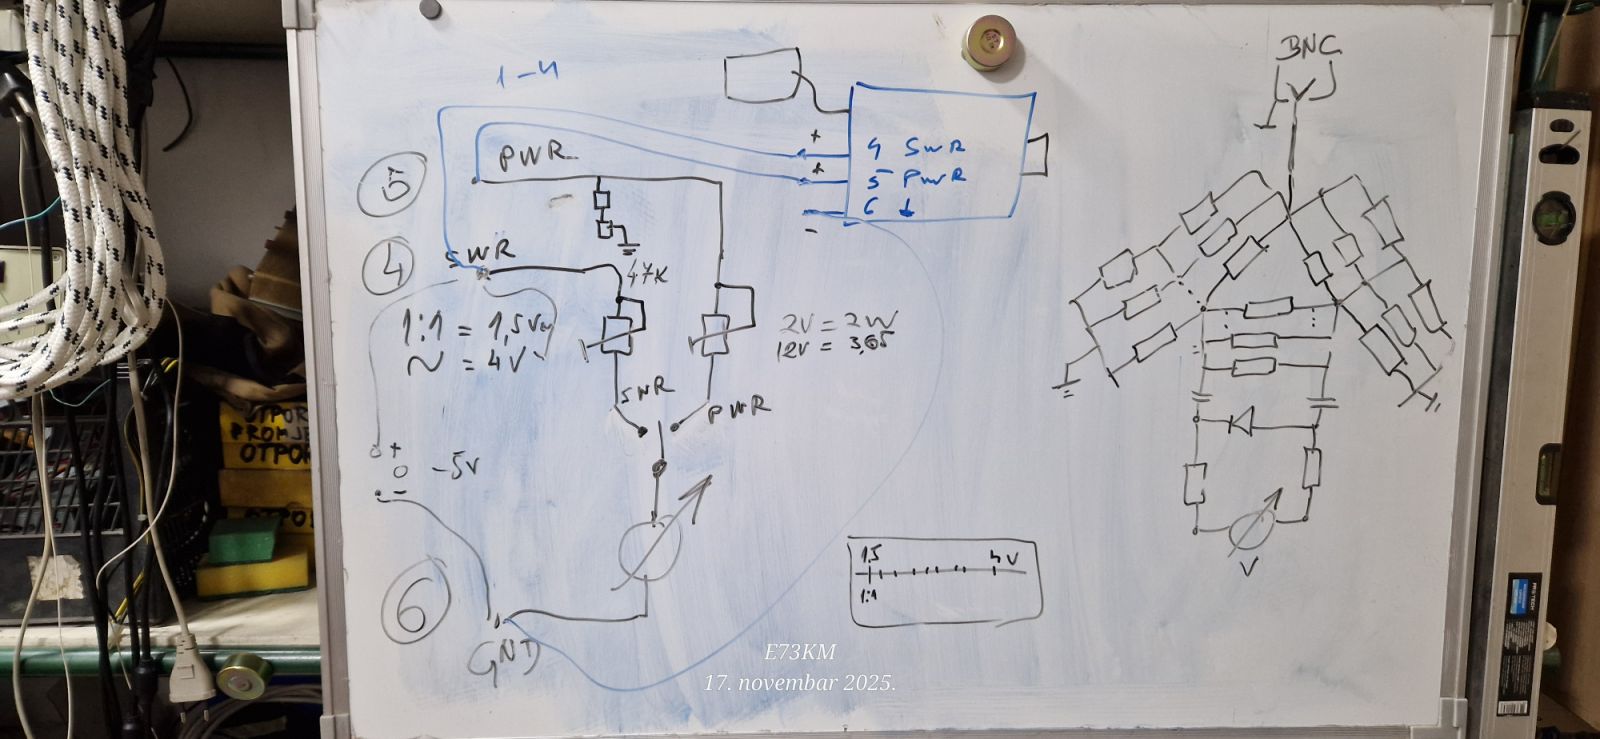 1-4
BNC
+
4 SWR
+
5 PWR
6
-
PWR
5
4
SWR
47K
1:1 = 1,5V
~ = 4V
2V = 2W
12V =
SWR
PWR
+
0 -5V
-
6
GND
1,5 4V
1:1
V
OTPOR
PROMJE
OTPO
OTPO
E73KM
17. novembar 2025.